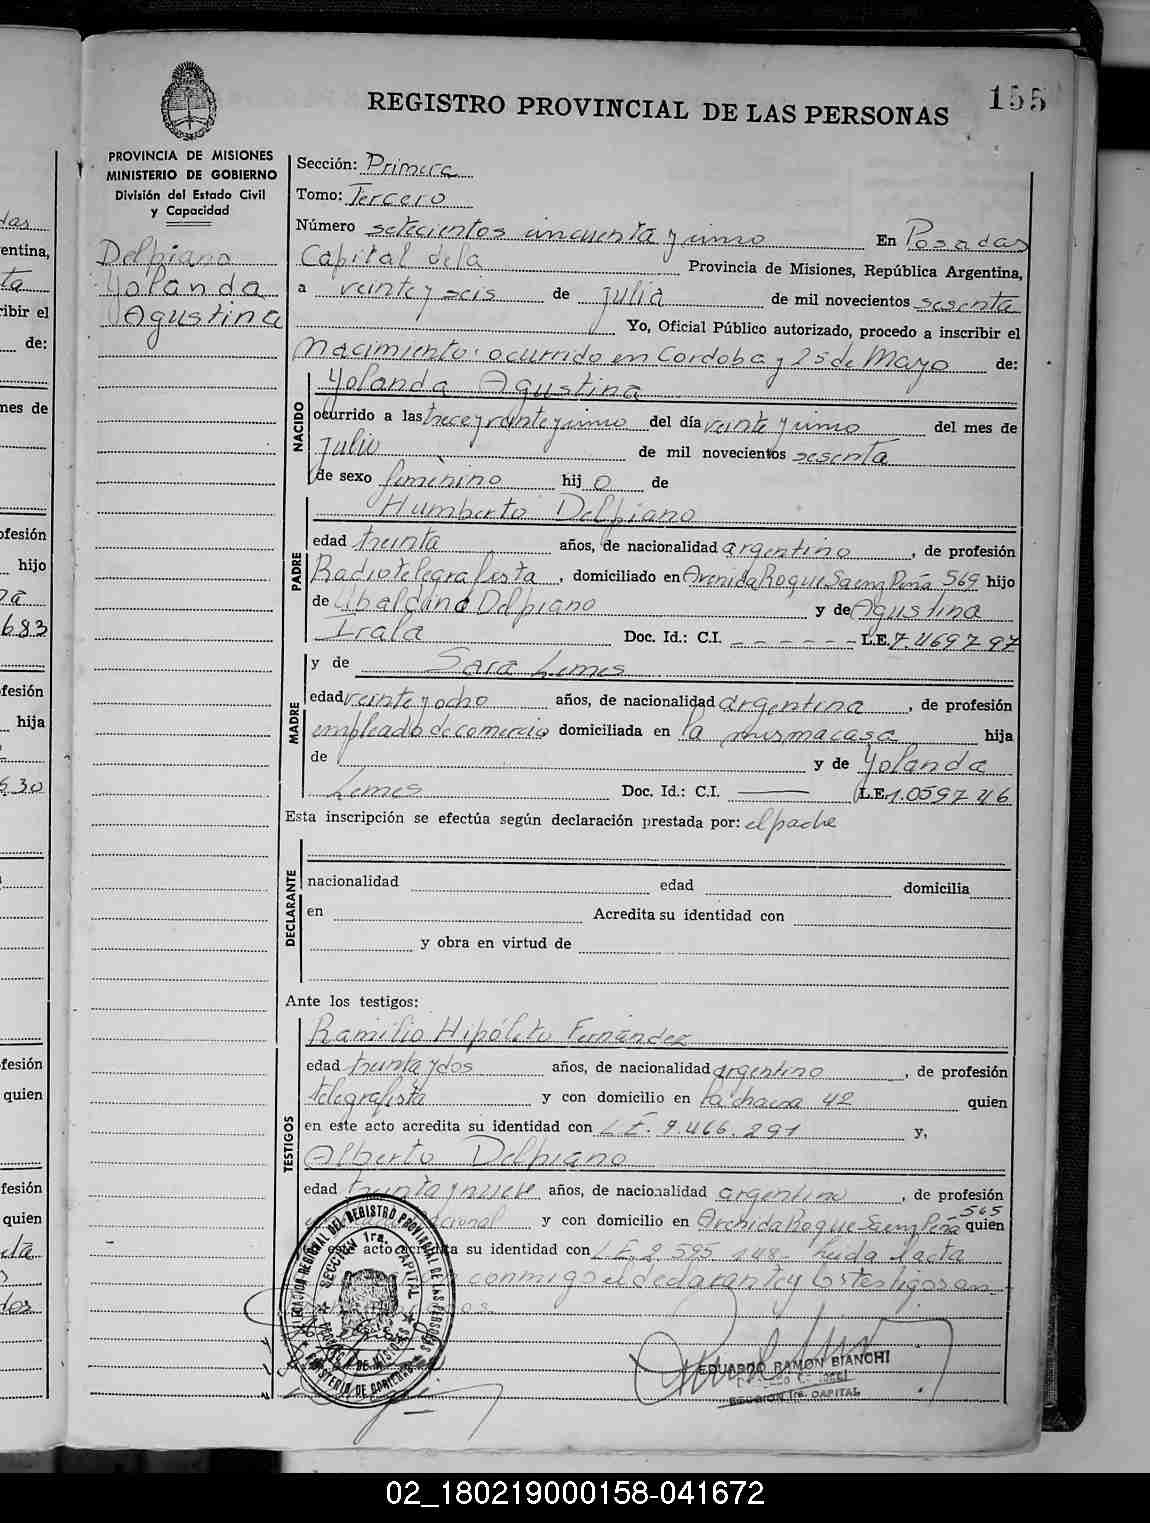 155
REGISTRO PROVINCIAL DE LAS PERSONAS
PROVINCIA DE MISIONES
MINISTERIO DE GOBIERNO
División del Estado Civil
y Capacidad
Delpiano
Yolanda
Agustina
Sección: Primera
Tomo: Tercero
Número setecientos cincuenta y uno En Posadas
Capital de la Provincia de Misiones, República Argentina,
a veinte y seis de julio de mil novecientos sesenta
Yo, Oficial Público autorizado, procedo a inscribir el
Nacimiento: ocurrido en Cordoba y 25 de Mayo de:
NACIDO
Yolanda Agustina
ocurrido a las trece y veinte y uno del día veinte y uno del mes de
Julio de mil novecientos sesenta
de sexo femenino hij o de
PADRE
Humberto Delpiano
edad treinta años, de nacionalidad argentino, de profesión
Radiotelegrafista, domiciliado en Avenida Roque Saenz Peña 569 hijo
de Ubaldino Delpiano y de Agustina
Irala Doc. Id.: C.I. - - - - - - - L.E. 7.469797
MADRE
y de Sara Lemes
edad veinte y ocho años, de nacionalidad argentina, de profesión
empleado de comercio domiciliada en la misma casa hija
de y de Yolanda
Lemes Doc. Id.: C.I. —— L.E. 1.059746
Esta inscripción se efectúa según declaración prestada por: el padre
DECLARANTE
nacionalidad edad domicilia
en Acredita su identidad con
y obra en virtud de
Ante los testigos:
TESTIGOS
Ramilio Hipólito Fernández
edad treinta y dos años, de nacionalidad argentino, de profesión
telegrafista y con domicilio en la chacra 42 quien
en este acto acredita su identidad con L.E. 7.466.291 y,
Alberto Delpiano
edad treinta y nueve años, de nacionalidad argentino, de profesión
y con domicilio en Avenida Roque Saenz Peña 565 quien
acto acredita su identidad con L.E. 2.595.148- leida el acta
conmigo el declarante y los testigos
EDUARDO RAMON BIANCHI
SECCION 1ra. CAPITAL
SECCIÓN 1ra. CAPITAL
02_180219000158-041672